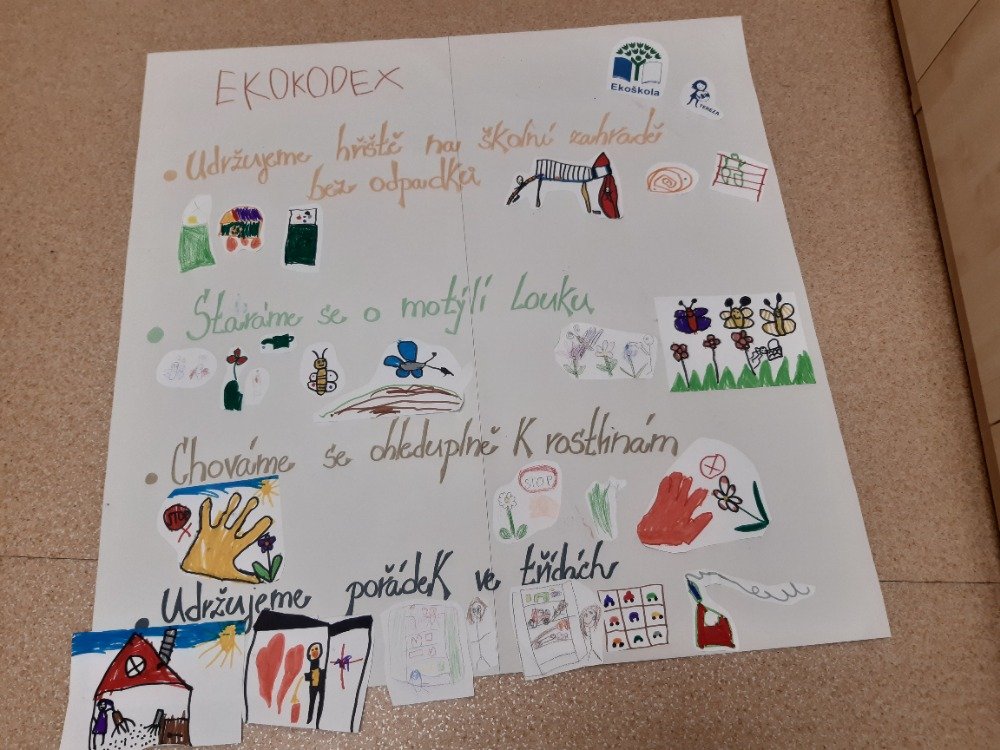 EKOKODEX
Ekoškola
TEREZA
• Udržujeme hřiště na školní zahradě
bez odpadků
• Staráme se o motýlí louku
• Chováme se ohleduplně k rostlinám
STOP
STOP
• Udržujeme pořádek ve třídách